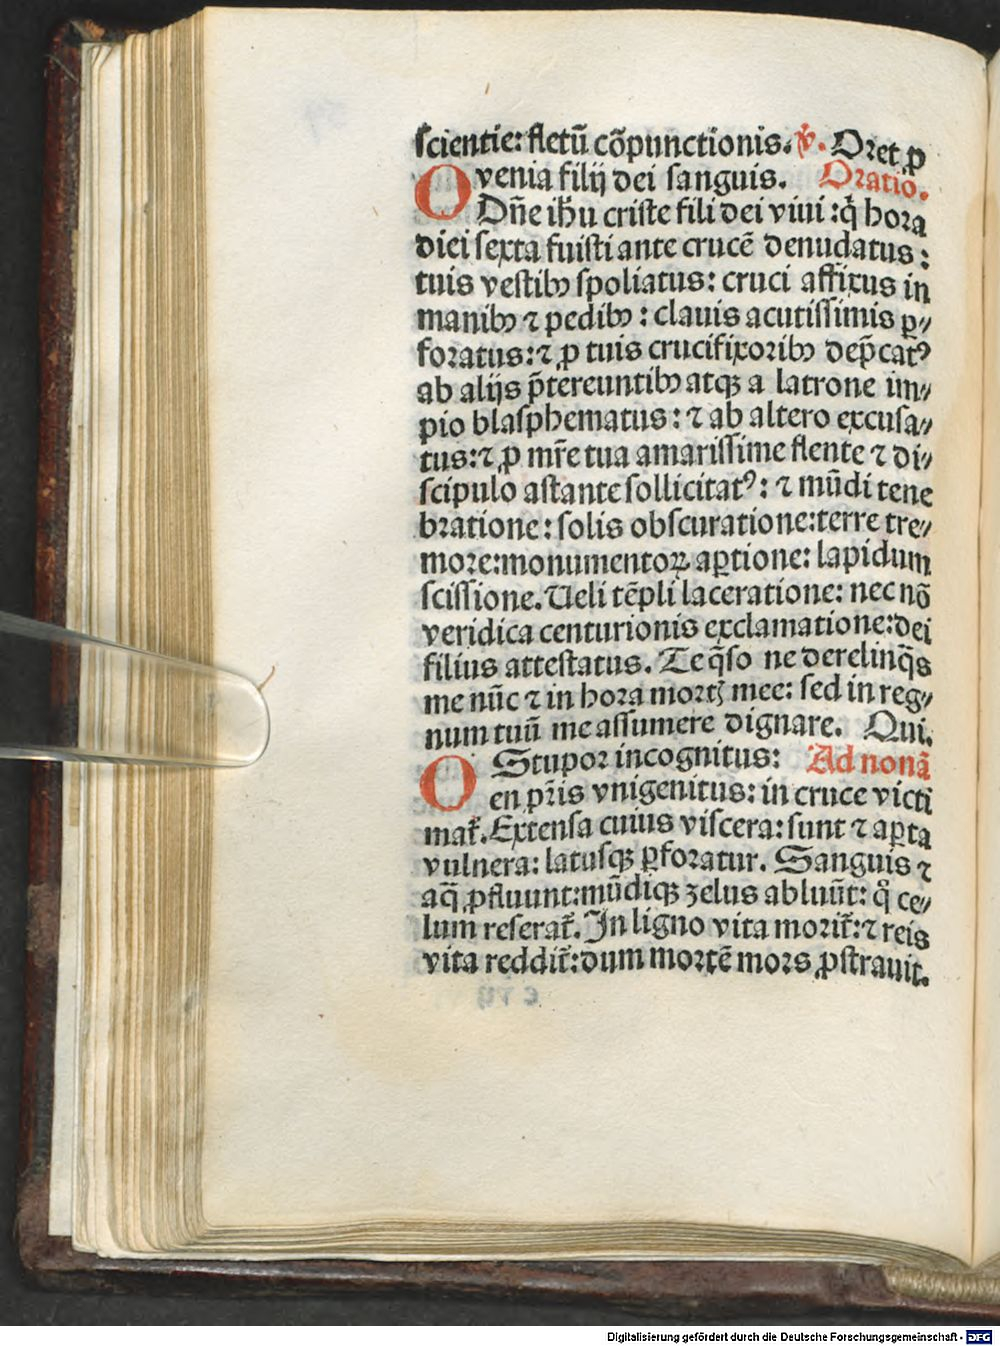 ſcientie: fletū cōpunctionis. ꝟ. Oret ꝓ
venia filij dei ſanguis. Oratio.
O Dn̄e ih̄u criſte fili dei viui: q̄ hora
diei ſexta fuiſti ante crucē denudatus:
tuis veſtibꝰ ſpoliatus: cruci affixus in
manibꝰ ⁊ pedibꝰ: clauis acutiſſimis ꝑ⸗
foratus: ⁊ ꝓ tuis crucifixoribꝰ dep̄catꝰ
ab alijs p̄tereuntibꝰ atqꝫ a latrone im⸗
pio blaſphematus: ⁊ ab altero excuſa⸗
tus: ⁊ ꝓ mr̄e tua amariſſime flente ⁊ di⸗
ſcipulo aſtante ſollicitatꝰ: ⁊ mūdi tene
bratione: ſolis obſcuratione: terre tre⸗
more: monumentoꝝ aꝑtione: lapidum
ſciſſione. Ueli tēpli laceratione: nec nō
veridica centurionis exclamatione: dei
filius atteſtatus. Te q̄ſo ne derelinq̄s
me nūc ⁊ in hora mortꝭ mee: ſed in reg⸗
num tuū me aſſumere dignare. Qui.
O Stupor incognitus: Ad nonā
en pr̄is vnigenitus: in cruce victi
mat̄. Extenſa cuius viſcera: ſunt ⁊ aꝑta
vulnera: latuſqꝫ ꝑforatur. Sanguis ⁊
aq̄ ꝓfluunt: mūdiqꝫ zelus abluūt: q̊ ce⸗
lum reſerat̄. In ligno vita morit̄: ⁊ reis
vita reddit̄: dum mortē mors ꝓſtrauit.
Digitalisierung gefördert durch die Deutsche Forschungsgemeinschaft - DFG